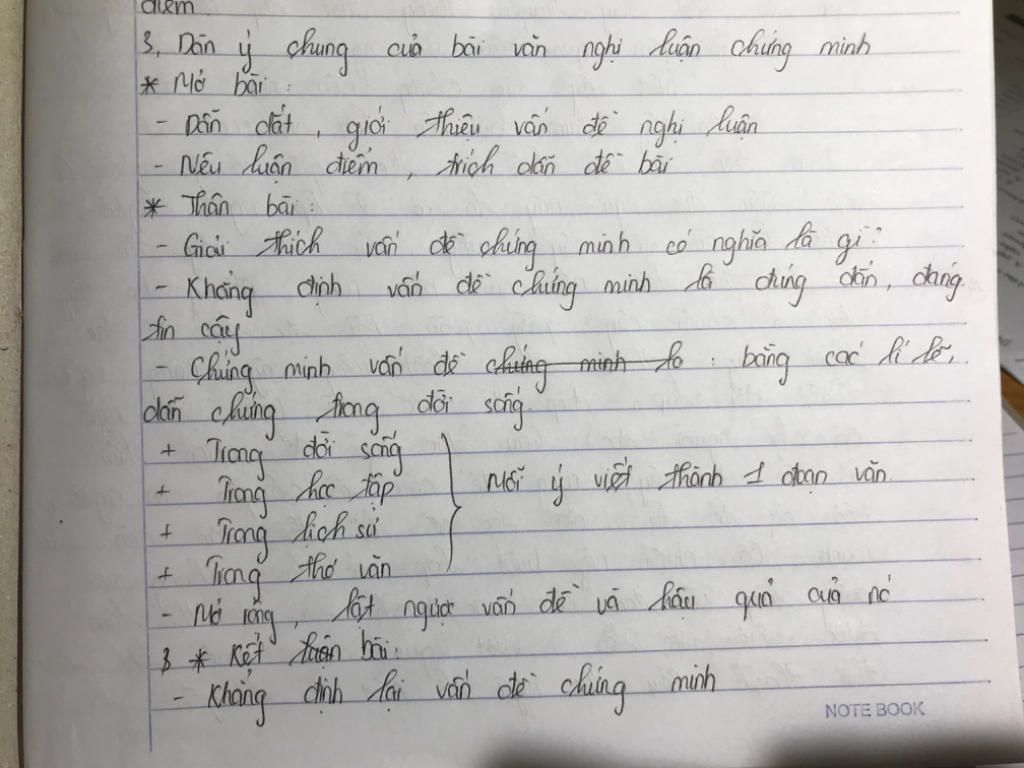 điểm
3, Dàn ý chung của bài văn nghị luận chứng minh
* Mở bài :
- Dẫn dắt , giới thiệu vấn đề nghị luận
- Nêu luận điểm , trích dẫn đề bài
* Thân bài :
- Giải thích vấn đề chứng minh có nghĩa là gì ?
- Khẳng định vấn đề chứng minh là đúng đắn, đáng
tin cậy
- Chứng minh vấn đề chứng minh lo : bằng các lí lẽ,
dẫn chứng trong đời sống
+ Trong đời sống
+ Trong học tập
+ Trong lịch sử
+ Trong thơ văn
Mỗi ý viết thành 1 đoạn văn
- Mở rộng , lật ngược vấn đề và hậu quả của nó
3 * Kết luận bài :
- Khẳng định lại vấn đề chứng minh
NOTE BOOK